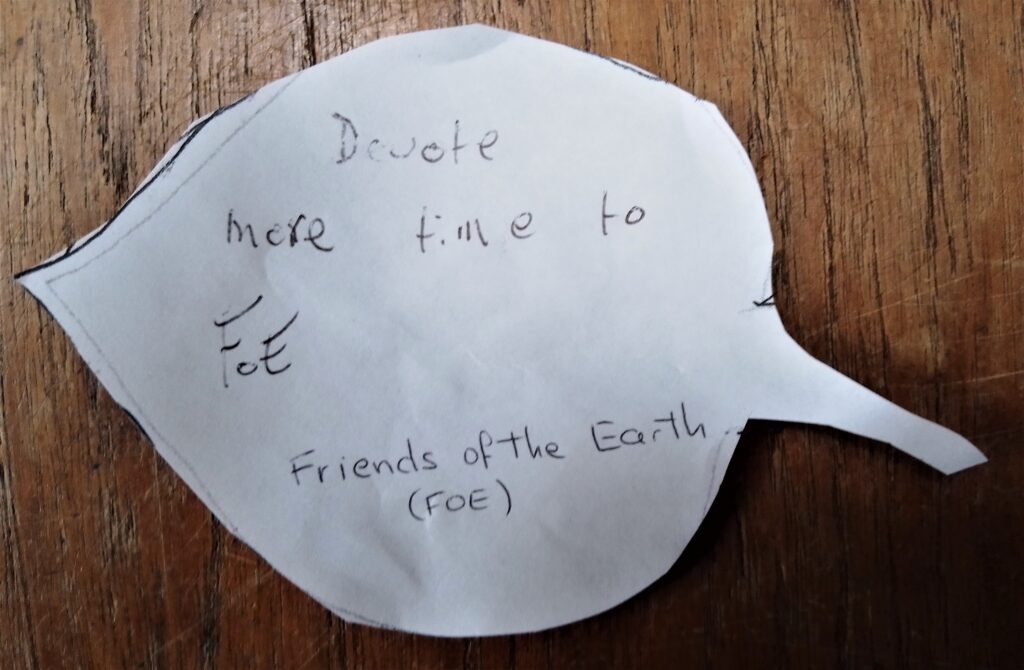 Devote
more time to
FoE
Friends of the Earth..
(FOE)